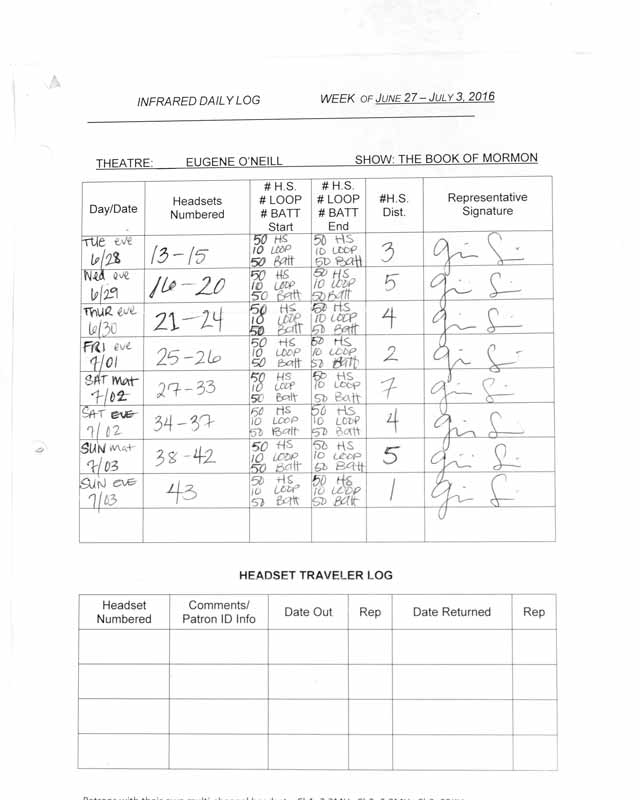 INFRARED DAILY LOG WEEK OF JUNE 27 – JULY 3, 2016
THEATRE: EUGENE O'NEILL SHOW: THE BOOK OF MORMON
Day/Date Headsets Numbered # H.S. # LOOP # BATT Start # H.S. # LOOP # BATT End #H.S. Dist. Representative Signature
TUE eve 6/28 13-15 50 HS 10 LOOP 50 Batt 50 HS 10 LOOP 50 Batt 3
Wed eve 6/29 16-20 50 HS 10 LOOP 50 Batt 50 HS 10 LOOP 50 Batt 5
THUR eve 6/30 21-24 50 HS 10 LOOP 50 Batt 50 HS 10 LOOP 50 Batt 4
FRI eve 7/01 25-26 50 HS 10 LOOP 50 Batt 50 HS 10 LOOP 50 Batt 2
SAT mat 7/02 27-33 50 HS 10 LOOP 50 Batt 50 HS 10 LOOP 50 Batt 7
SAT EVE 7/02 34-37 50 HS 10 LOOP 50 Batt 50 HS 10 LOOP 50 Batt 4
SUN mat 7/03 38-42 50 HS 10 LOOP 50 Batt 50 HS 10 LOOP 50 Batt 5
SUN EVE 7/03 43 50 HS 10 LOOP 50 Batt 50 HS 10 LOOP 50 Batt 1
HEADSET TRAVELER LOG
Headset Numbered Comments/ Patron ID Info Date Out Rep Date Returned Rep